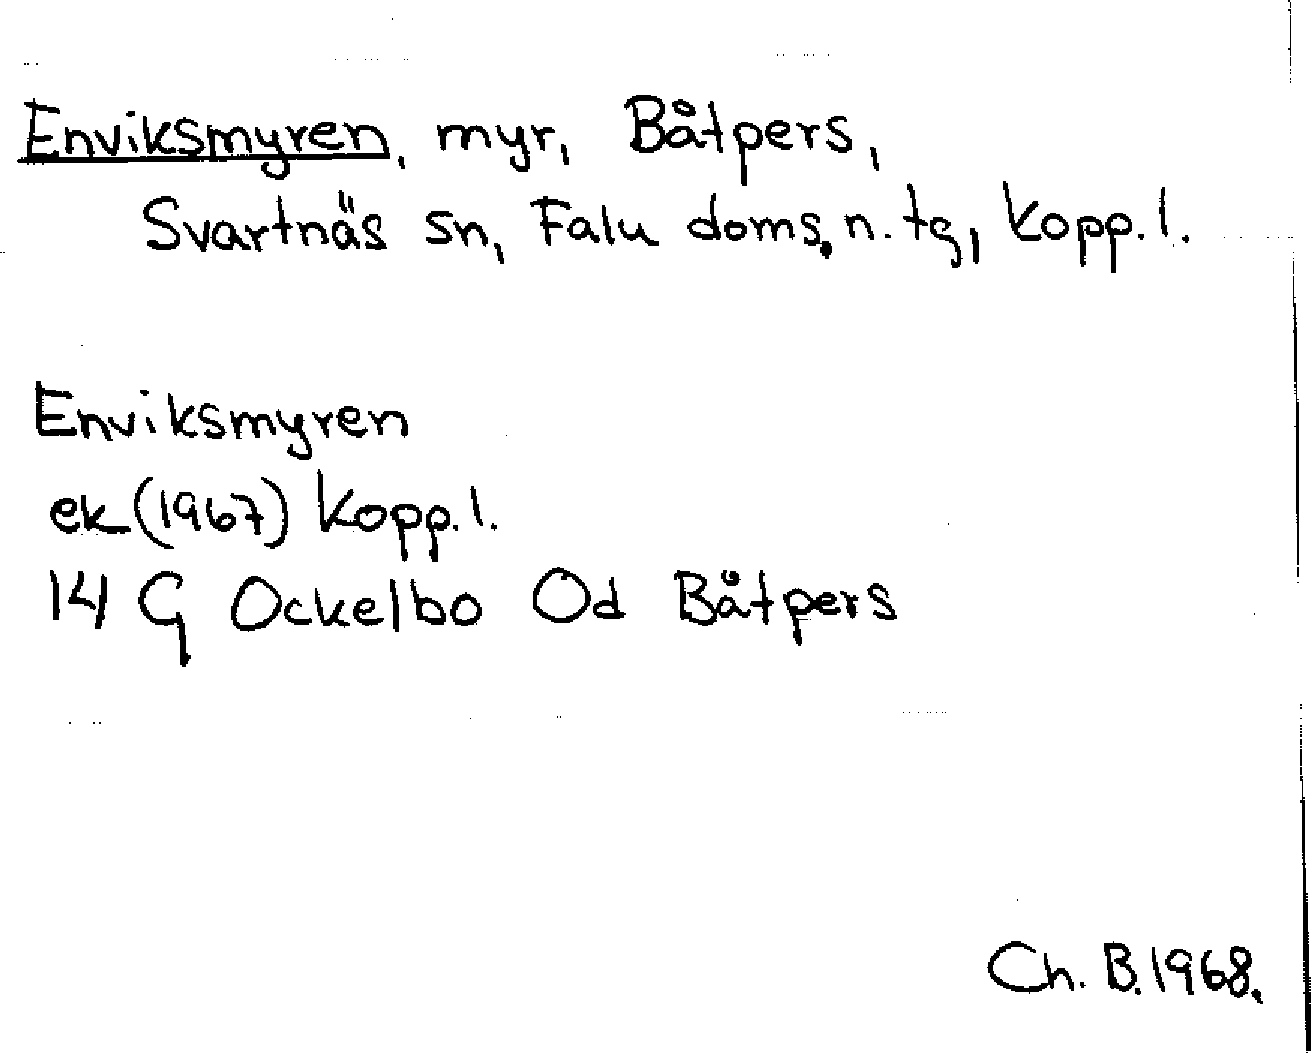 Enviksmyren, myr, Båtpers,
Svartnäs sn, Falu doms. n. tg, Kopp. l.
Enviksmyren
ek (1967) Kopp. l.
14 G Ockelbo Od Båtpers
Ch. B. 1968.